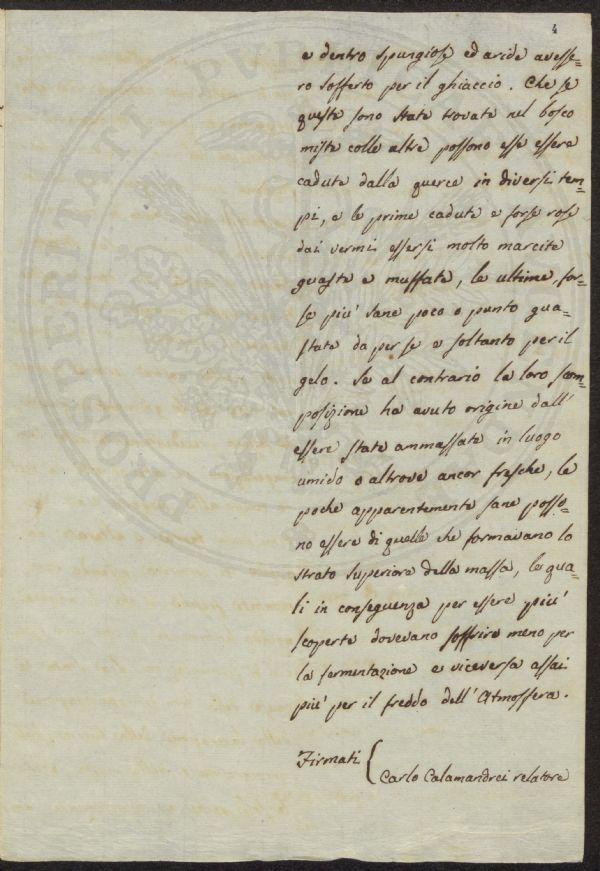 4
e dentro spungiose ed aride avesse=
ro sofferto per il ghiaccio. Che se
queste sono state trovate nel bosco
miste colle altre possono esse essere
cadute dalla querce in diversi tem=
pi, e le prime cadute e forse rose
dai vermi essersi molto marcite
guaste e muffate, le ultime, for=
se piu' sane poco o punto gua=
state da per se e soltanto per il
gelo. Se al contrario la loro scom=
posizione ha avuto origine dall'
essere state ammassate in luogo
umido o altrove ancor fresche, le
poche apparentemente sane posso=
no essere di quelle che formavano lo
strato superiore della massa, le qua=
li in conseguenza per essere piu'
scoperte dovevano soffrire meno per
la fermentazione e viceversa assai
piu' per il freddo dell'Atmosfera.
Firmati { Carlo Calamandrei relatore
PROSPERITATI PVB